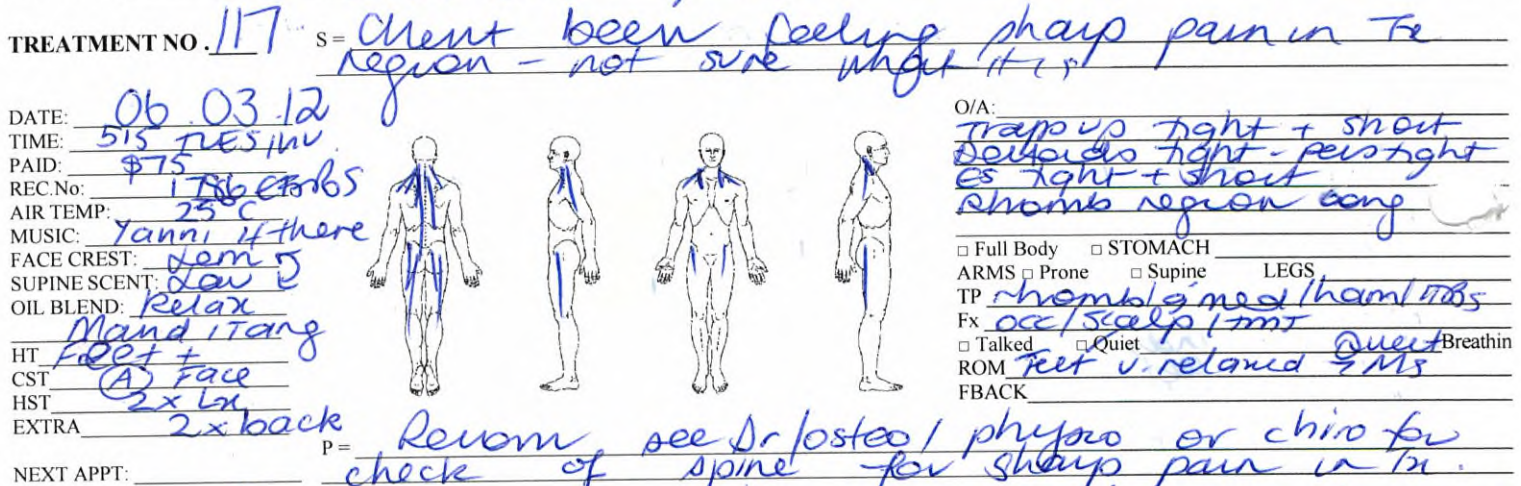 TREATMENT NO. 117 S = Client been feeling sharp pain in Tx
region - not sure what it is
DATE: 06.03.12
TIME: 515 TUES
PAID: $75
REC.No: 1786
AIR TEMP: 25°C
MUSIC: Yanni if there
FACE CREST: Lem
SUPINE SCENT: Lav
OIL BLEND: Relax
Mand / Tang
HT Feet +
CST (A) Face
HST 2 x Lx
EXTRA 2 x back
NEXT APPT:
O/A:
Trapp up tight + short
Deltoids tight - pecs tight
ES tight + short
Rhomb region cong
□ Full Body □ STOMACH
ARMS □ Prone □ Supine LEGS
TP rhomb / g med / ham / ITBs
Fx occ / scalp / TMJ
□ Talked □ Quiet Quiet Breathin
ROM Feet v. relaxed
FBACK
P = Recom see Dr / osteo / physio or chiro for
check of spine for sharp pain in Tx.